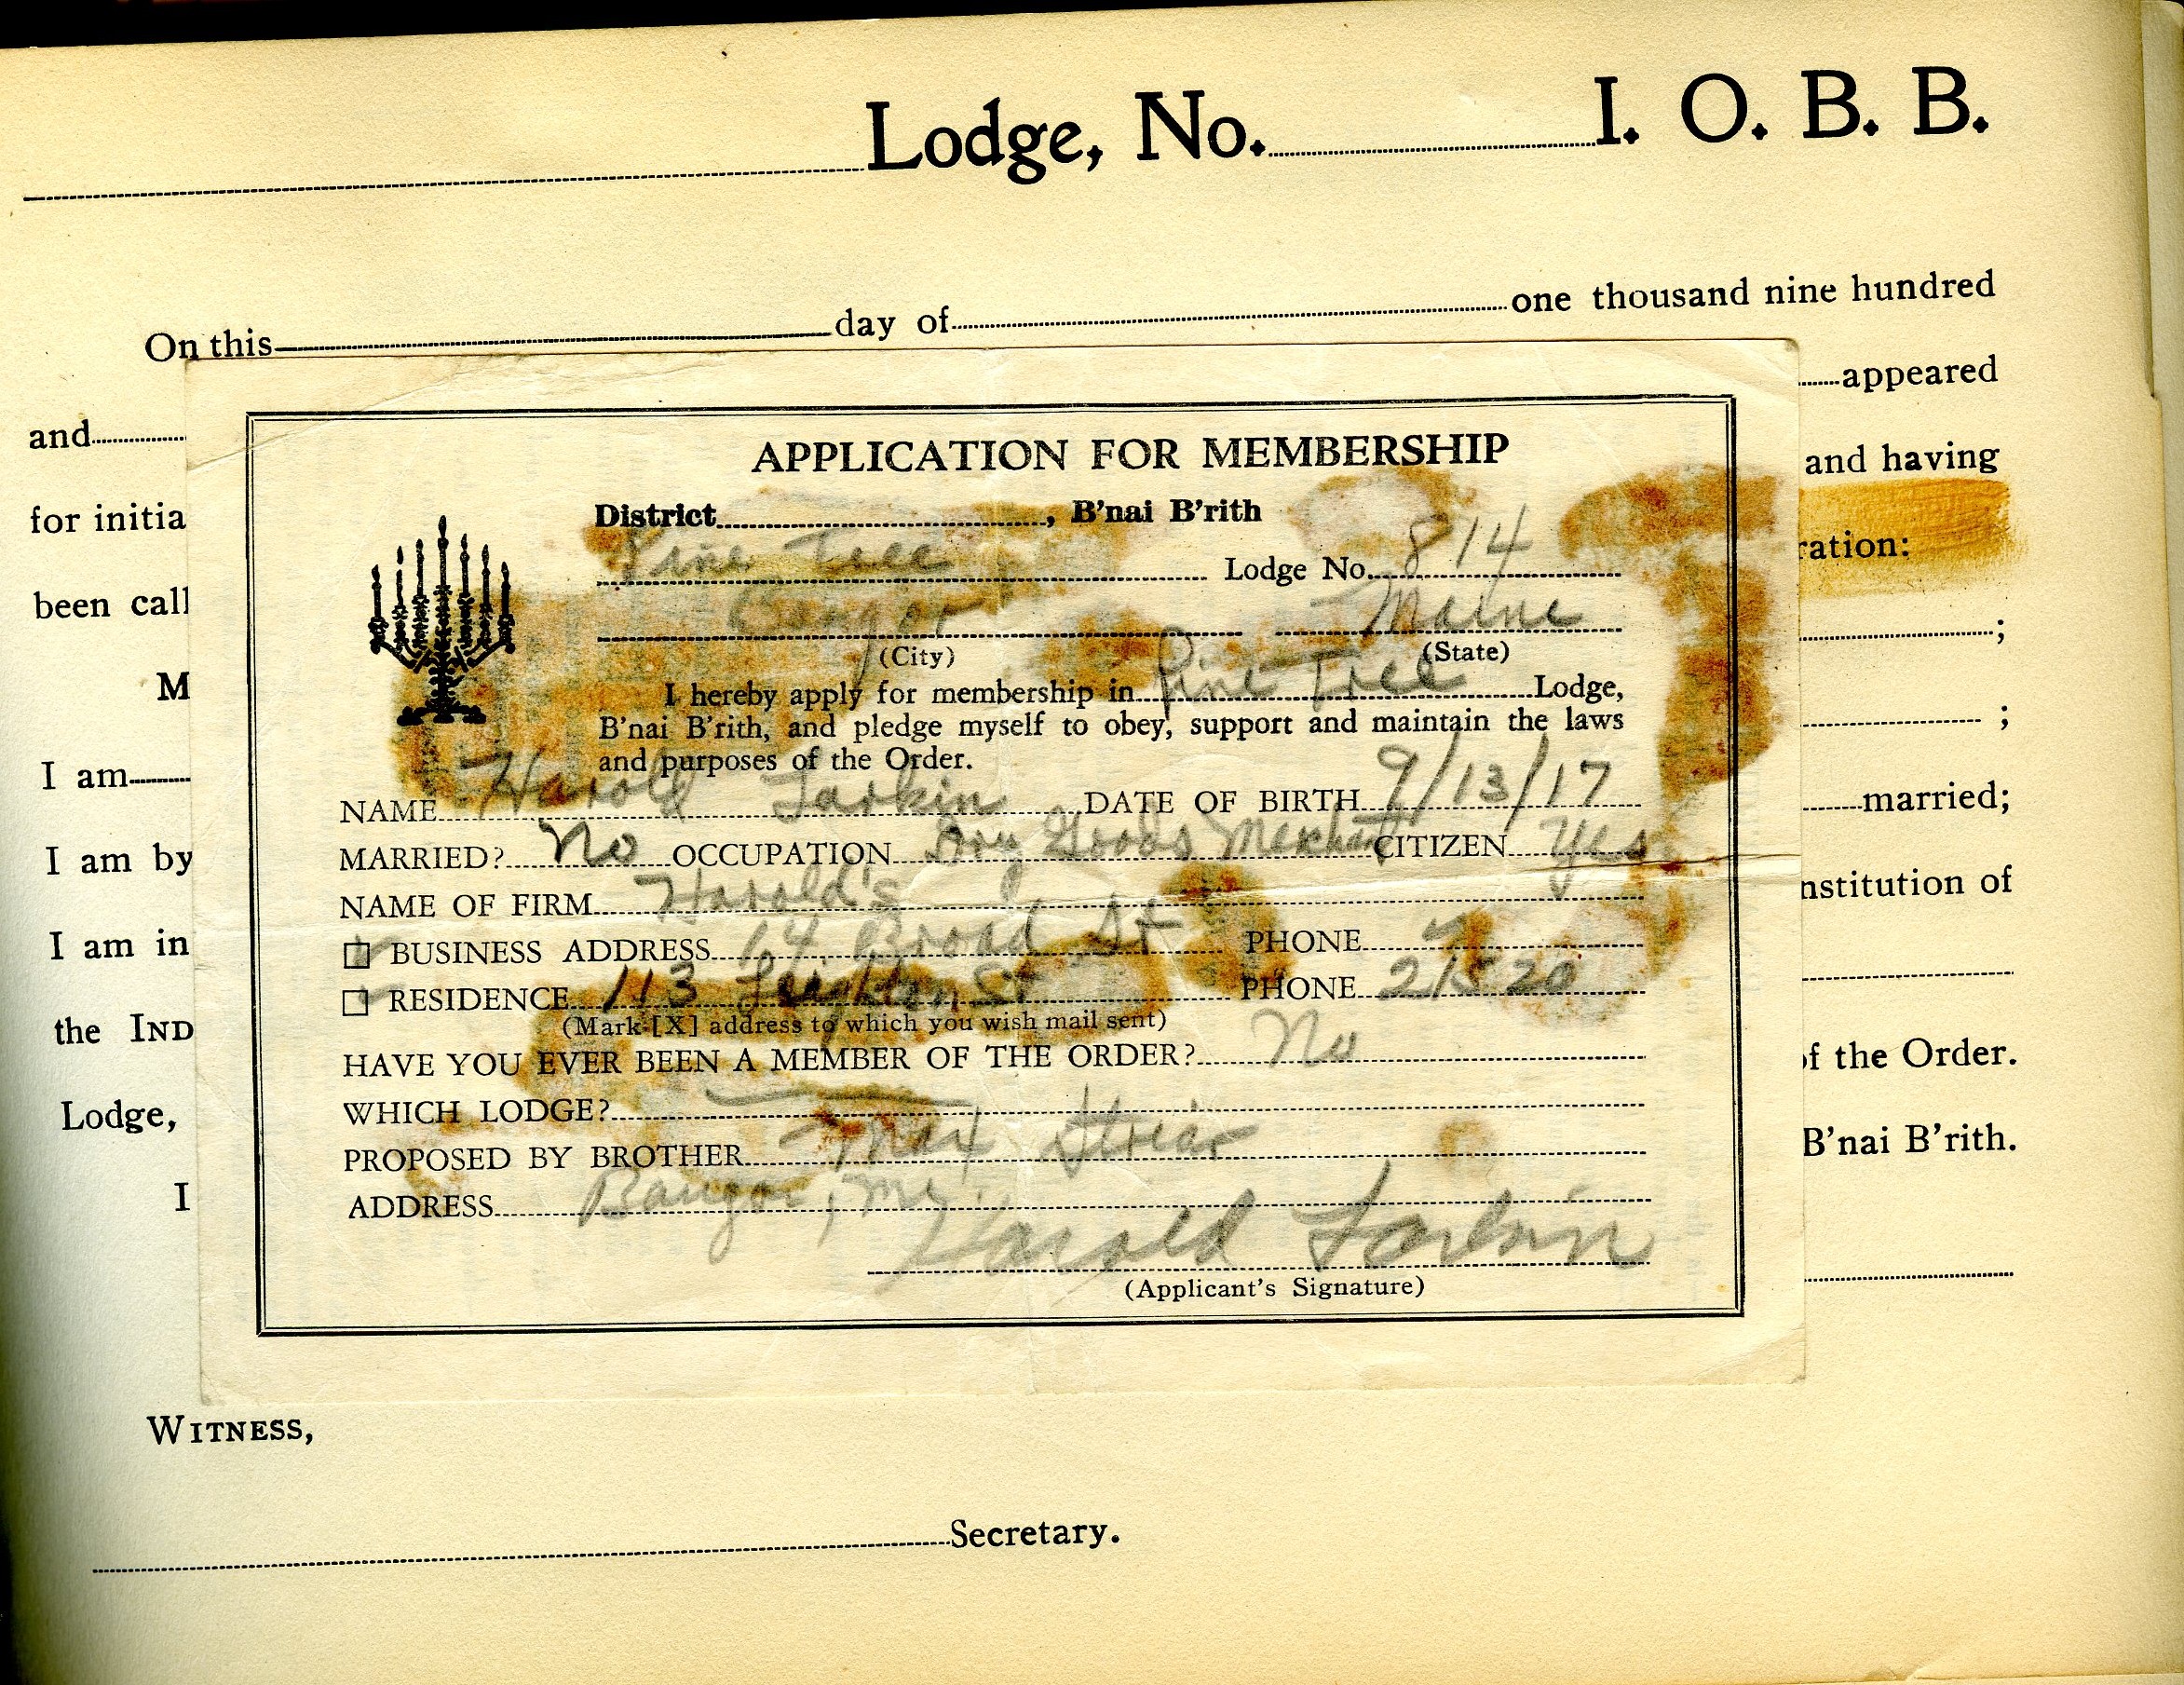 Lodge, No. I. O. B. B.
On this day of one thousand nine hundred
appeared
and
and having
for initia
ration:
been call
;
M
;
I am
married;
I am by
nstitution of
I am in
the IND
of the Order.
Lodge,
B'nai B'rith.
I
APPLICATION FOR MEMBERSHIP
District, B'nai B'rith
Pine Tree Lodge No. 814
Bangor Maine
(City) (State)
I hereby apply for membership in Pine Tree Lodge,
B'nai B'rith, and pledge myself to obey, support and maintain the laws
and purposes of the Order.
NAME Harold Larkin DATE OF BIRTH 9/13/17
MARRIED? No OCCUPATION Dry Goods Merchant CITIZEN Yes
NAME OF FIRM Harold's
BUSINESS ADDRESS 64 Broad St PHONE
RESIDENCE 113 Leighton St PHONE 21520
(Mark [X] address to which you wish mail sent)
HAVE YOU EVER BEEN A MEMBER OF THE ORDER? No
WHICH LODGE?
PROPOSED BY BROTHER Max Striar
ADDRESS Bangor, Me.
Harold Larkin
(Applicant's Signature)
WITNESS,
Secretary.